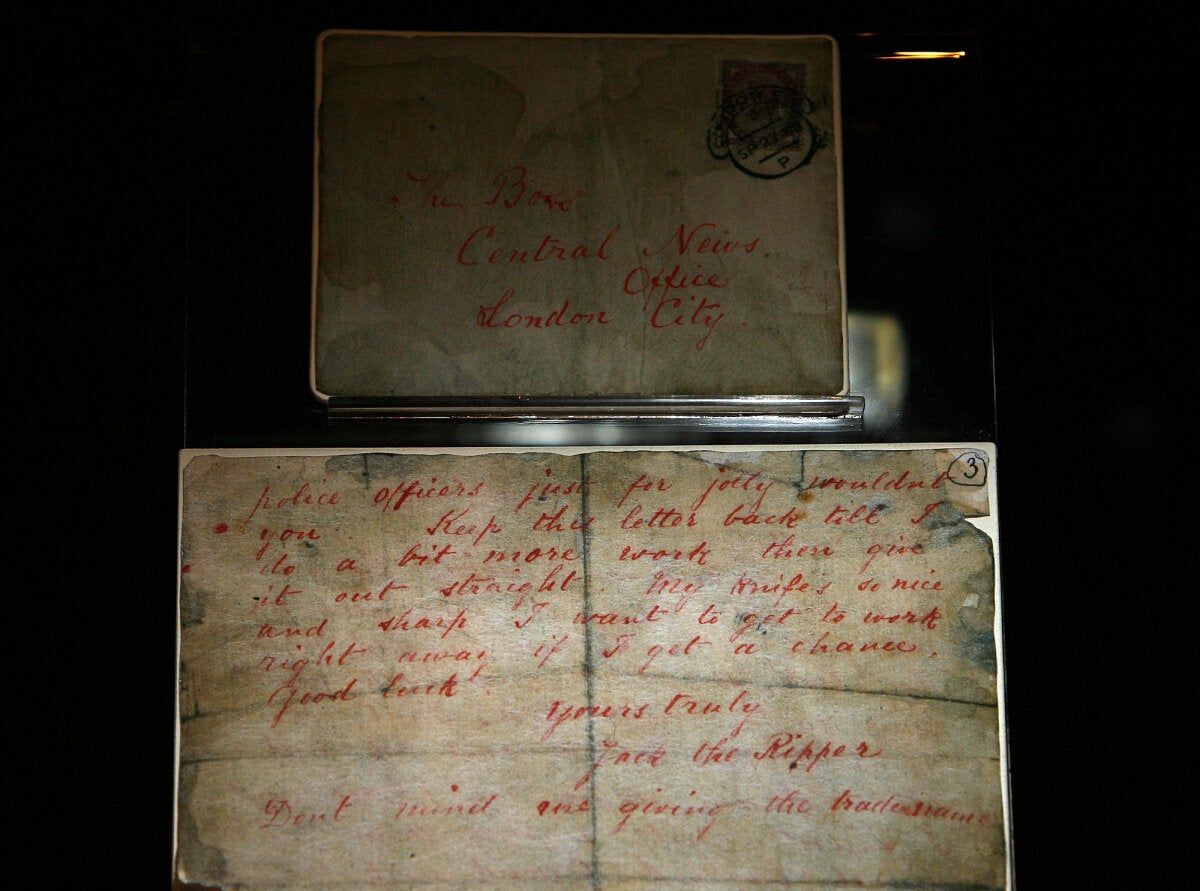 The Boss
Central News
Office
London City.
SP 27 88
P
3
police officers just for jolly wouldnt
you Keep this letter back till I
do a bit more work then give
it out straight. My knife's so nice
and sharp I want to get to work
right away if I get a chance,
good luck.
yours truly
Jack the Ripper
Dont mind me giving the trade name